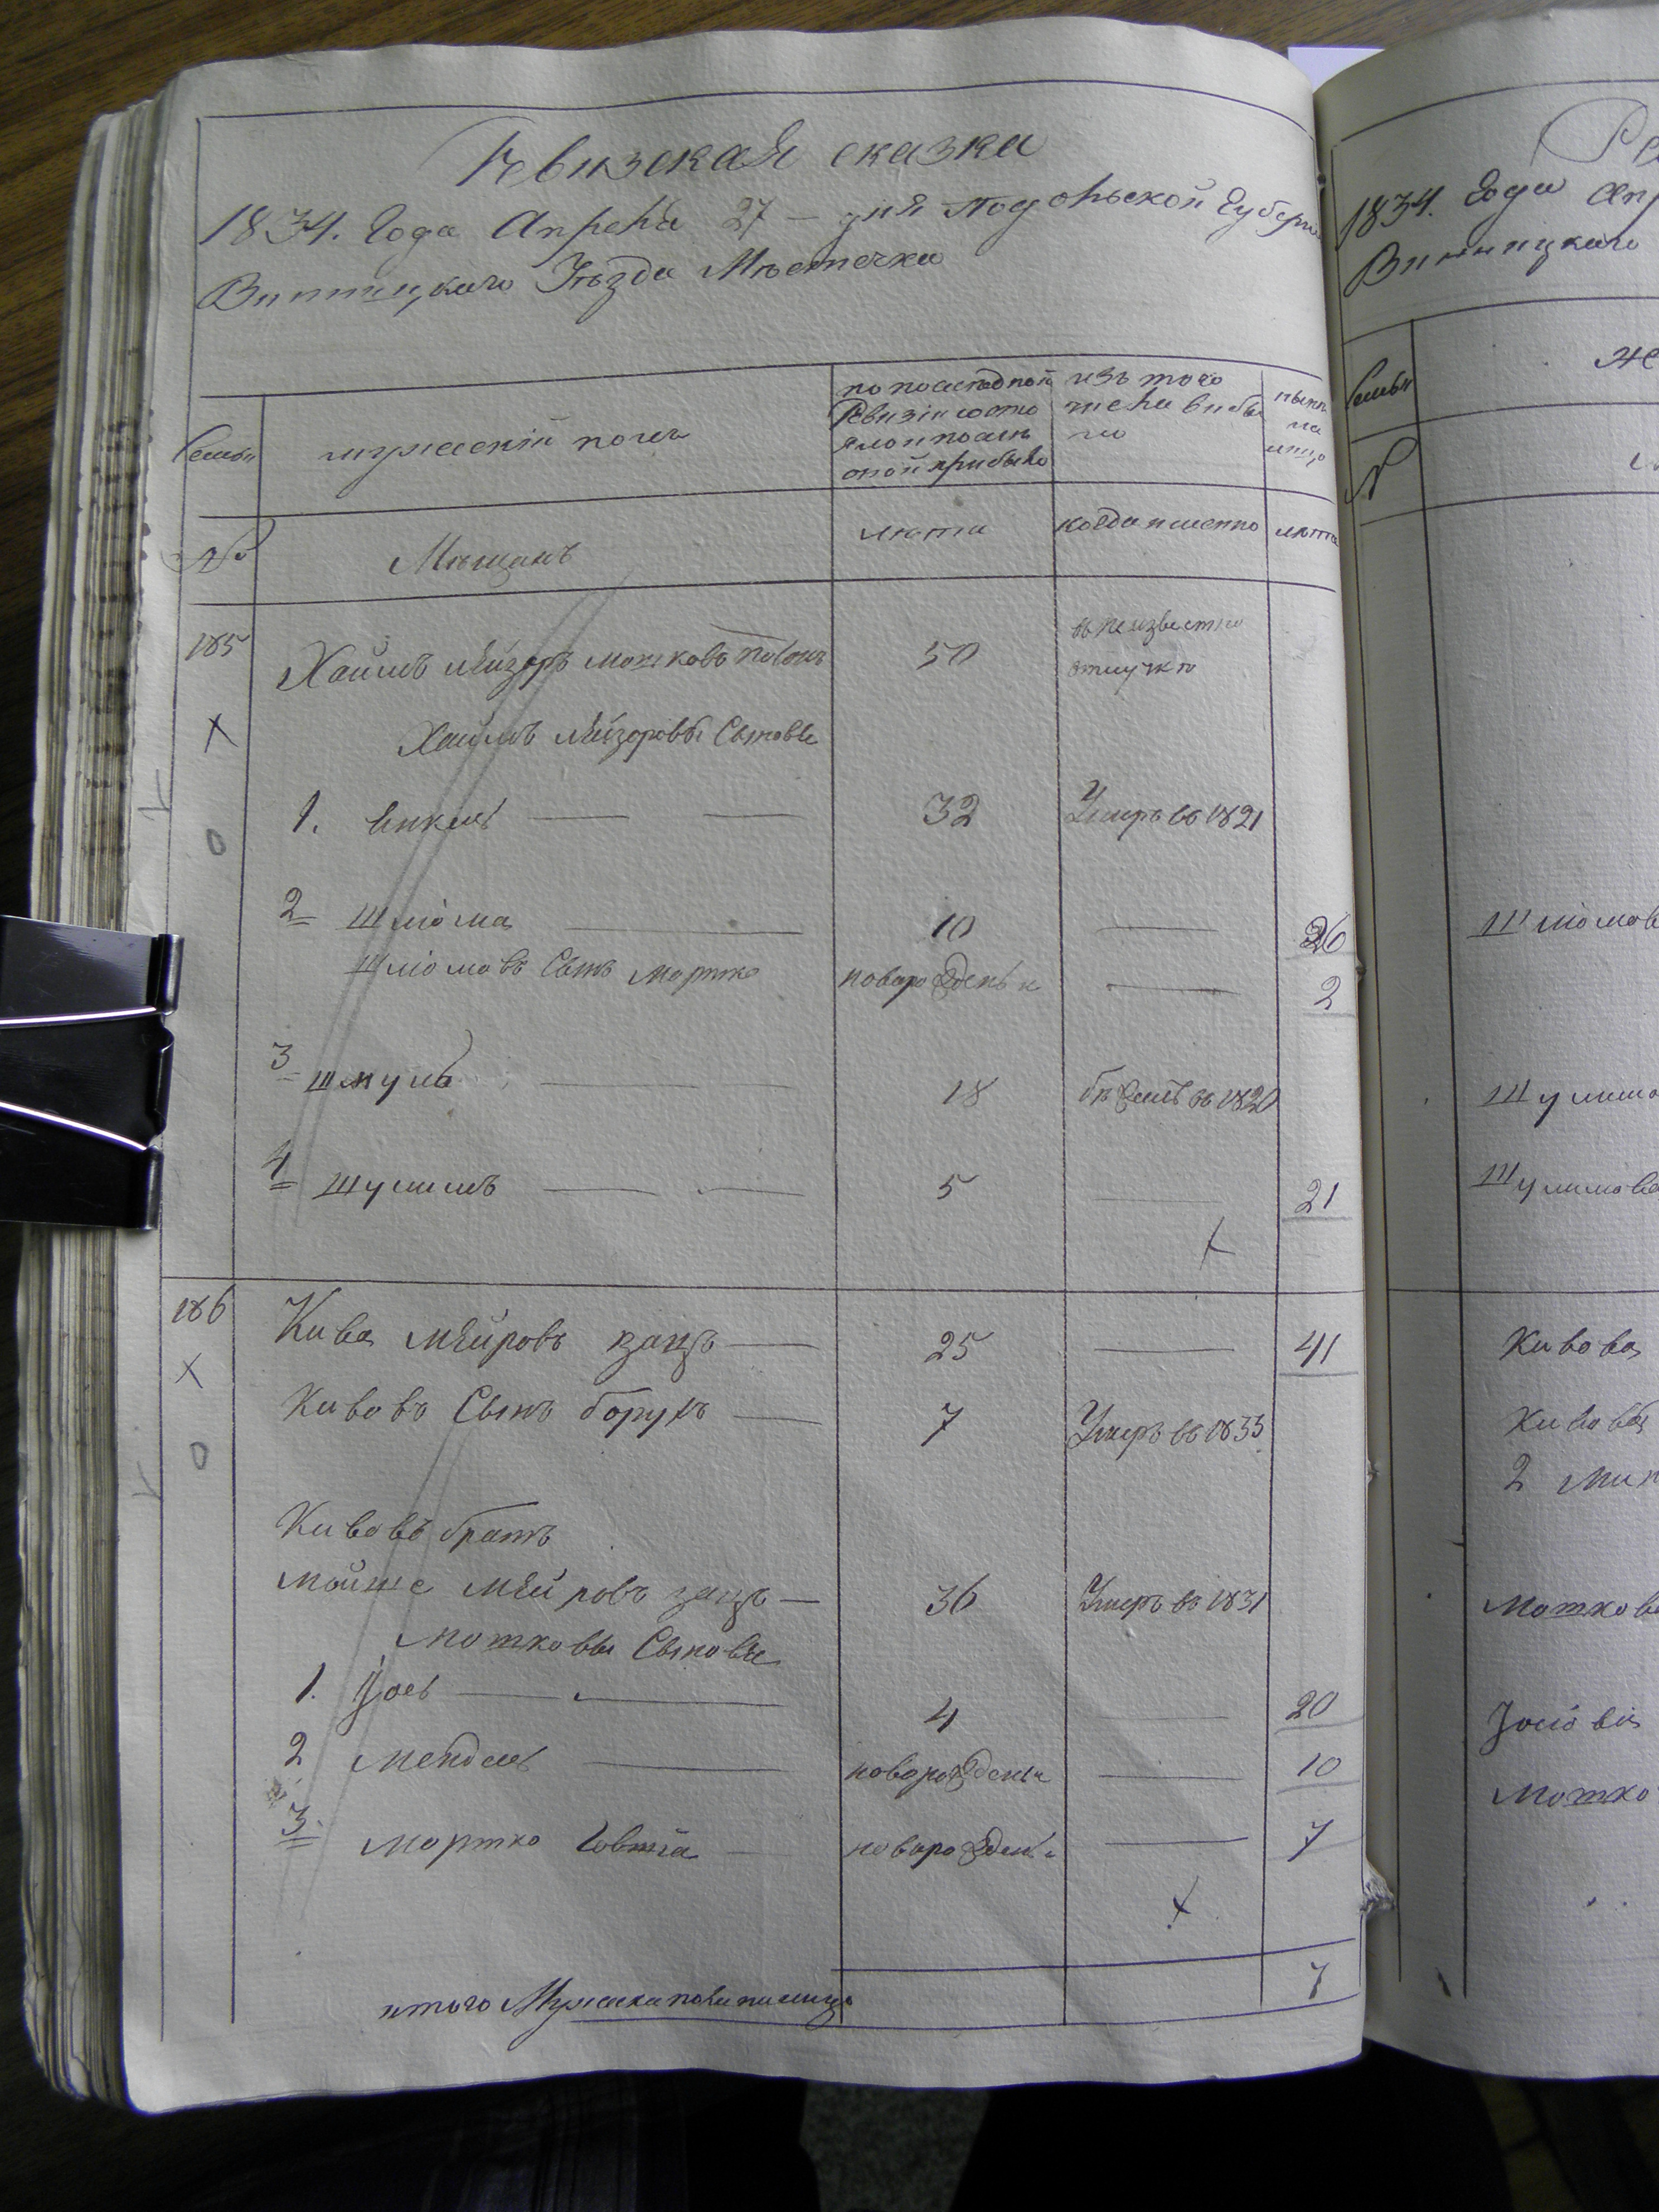 Ревизская сказка
1834. Года Апреля 27 — дня Подольской Губерн
Винницкаго Уѣзда Мѣстечка
Семьи
мужескій полъ
по последней Ревизіи состояло и после оной прибыло
изъ того числа выбыло
ныне на лицо
№
Мещанъ
лета
когда именно
лета
185
Хаимъ Лейзоръ Мошковъ
50
в неизвестно отлучке
Хаимъ Лейзоровы Сыновье
1. Янкель
32
Умеръ въ 1821
2 Шліома
10
26
Шліомовъ Сынъ Мортко
новорожденъ
2
3 Шмуль
18
бежалъ въ 1820
4 Шулимъ
5
21
186
Кива Мейровъ
25
41
Кивовъ Сынъ Борухъ
7
Умеръ въ 1833
Кивовъ братъ
Мойше Мейровъ
36
Умеръ въ 1831
Мошковы Сыновье
1. Іось
4
20
2 Мендель
новорожденъ
10
3. Мортко Говшіа
новорожден
7
итого Мужеска пола на лицо
7
1834. Года Апр
Винницкаго
Семьи
же
№
Шліомов
Шулимо
Шулимова
Кивова
Кивова
2
Мошков
Іосіова
Мошко